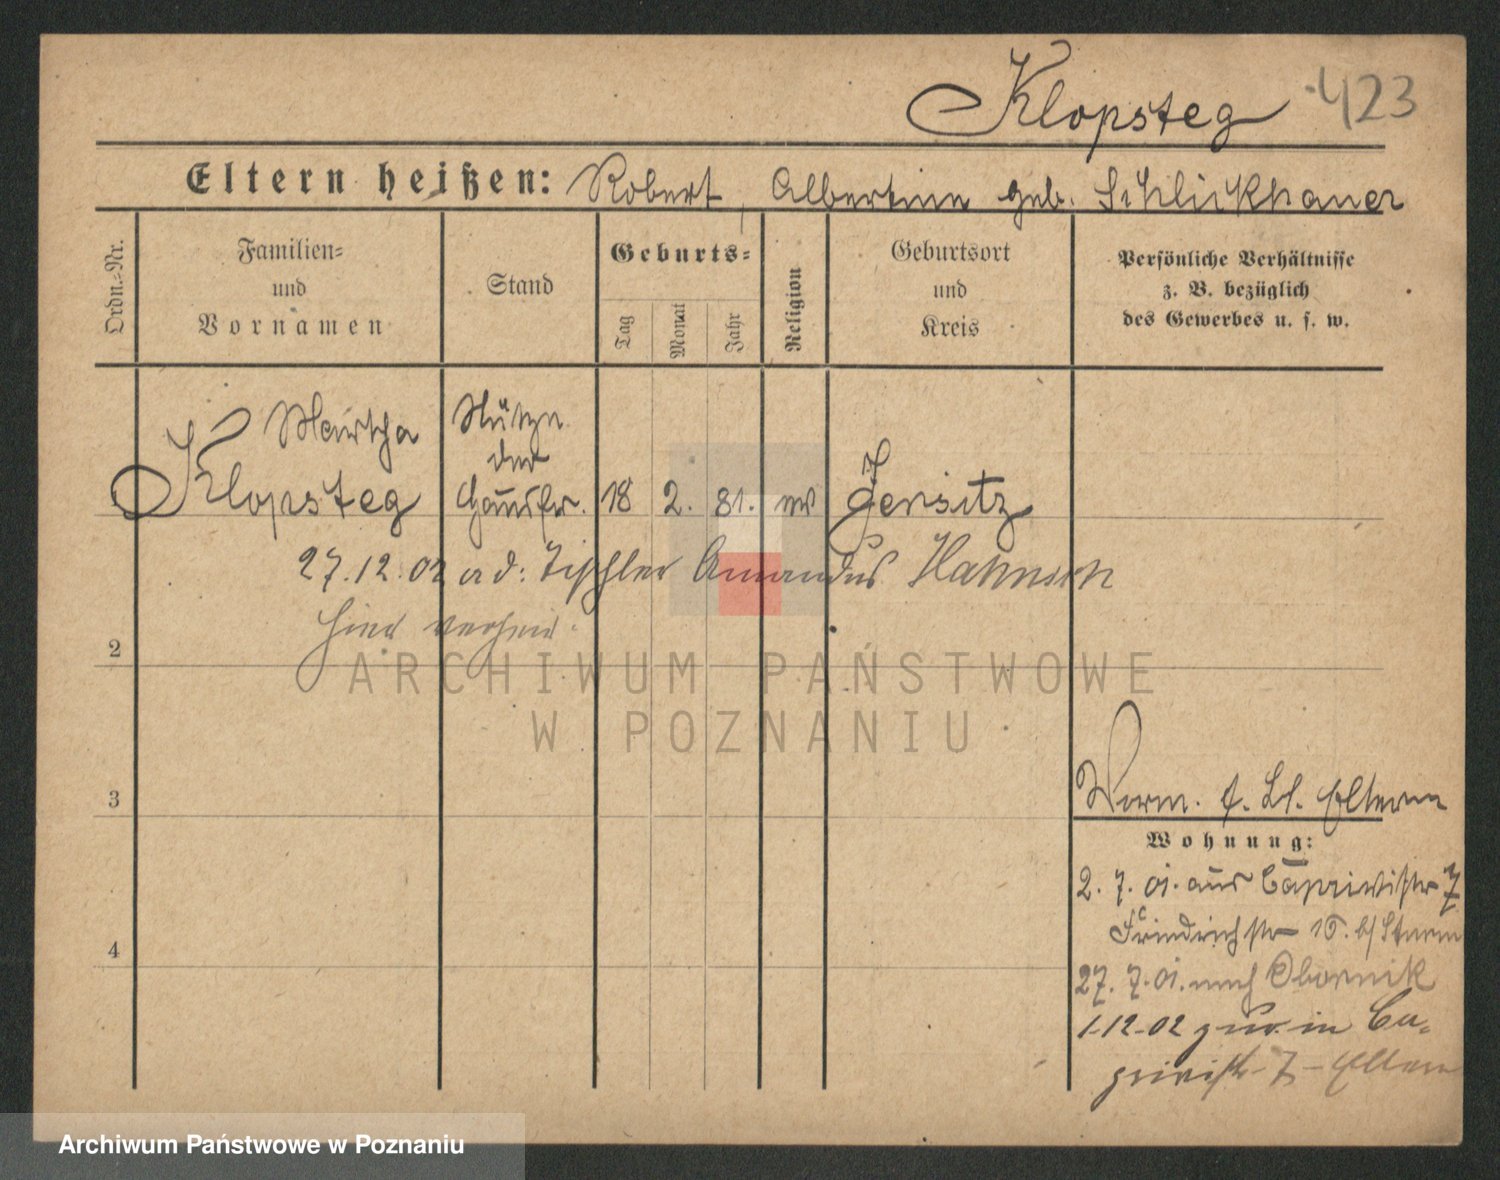 Klopsteg 423
Eltern heißen: Robert, Albertine geb. Schlickhauer
Ordn.-Nr.
Familien-
und
Vornamen
Stand
Geburts-
Tag
Monat
Jahr
Religion
Geburtsort
und
Kreis
Persönliche Verhältnisse
z. B. bezüglich
des Gewerbes u. s. w.
Martha
Klopsteg
Stütze
der
Hausfr.
18 2. 81. ev Jersitz
27.12.02 a d: Tischler Amandus
hier verheir.
2
ARCHIWUM PAŃSTWOWE
W POZNANIU
3
4
Eltern
Wohnung:
2. 7. 01. aus Caprivistr 7
Friedrichstr 15. b/ Sturm
27. 7. 01. nach Obornik
1-12-02 zur. in Ca-
privistr 7 - Eltern
Archiwum Państwowe w Poznaniu